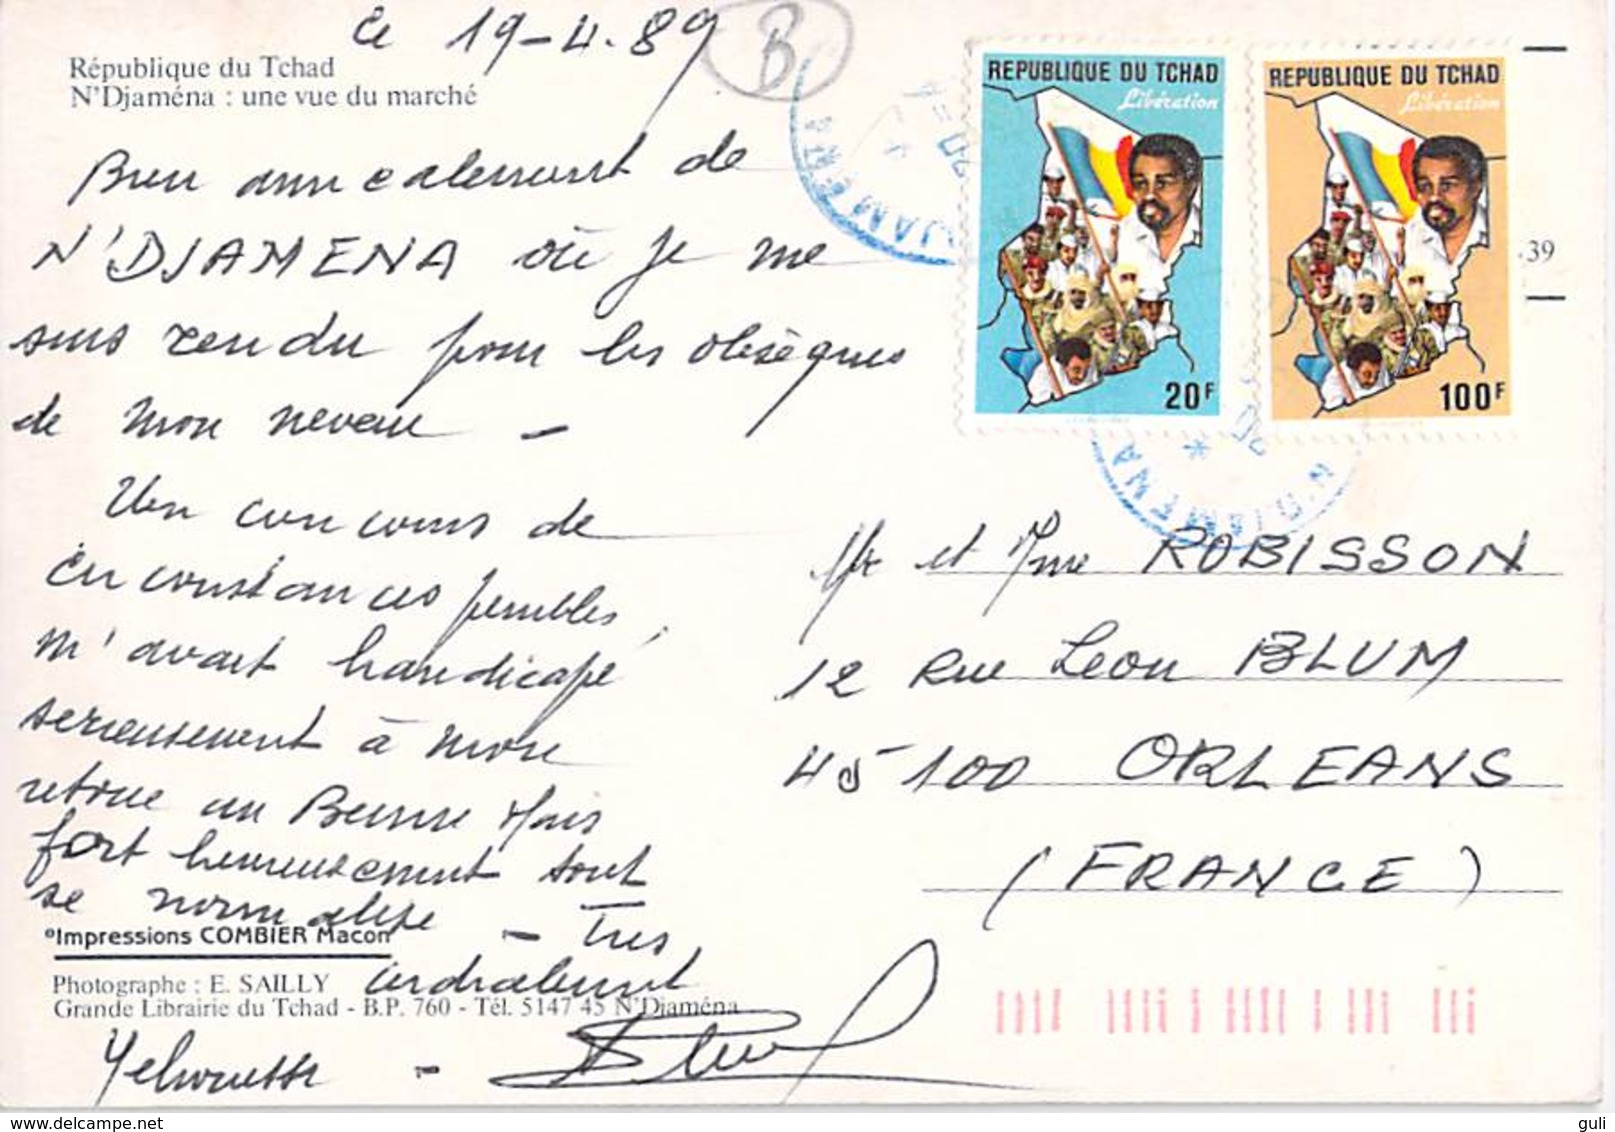 le 19-4.89
B
République du Tchad
N'Djaména : une vue du marché
Bien amicalement de
N'DJAMENA où je me
suis rendu pour les obsèques
de mon neveu -
Un concours de
circonstances pénibles,
m'avait handicapé
serieusement à mon
retour au Benin mais
fort heureusement tout
se normalise - Tres
cordialement
°Impressions COMBIER Macon
Photographe : E. SAILLY
Grande Librairie du Tchad - B.P. 760 - Tél. 5147 45 N'Djaména
REPUBLIQUE DU TCHAD
Libération
20F
REPUBLIQUE DU TCHAD
Libération
100F
.39
N'DJAMENA
N'DJAMENA
Mr et Mme ROBISSON
12 Rue Leon BLUM
45100 ORLEANS
(FRANCE)
guli